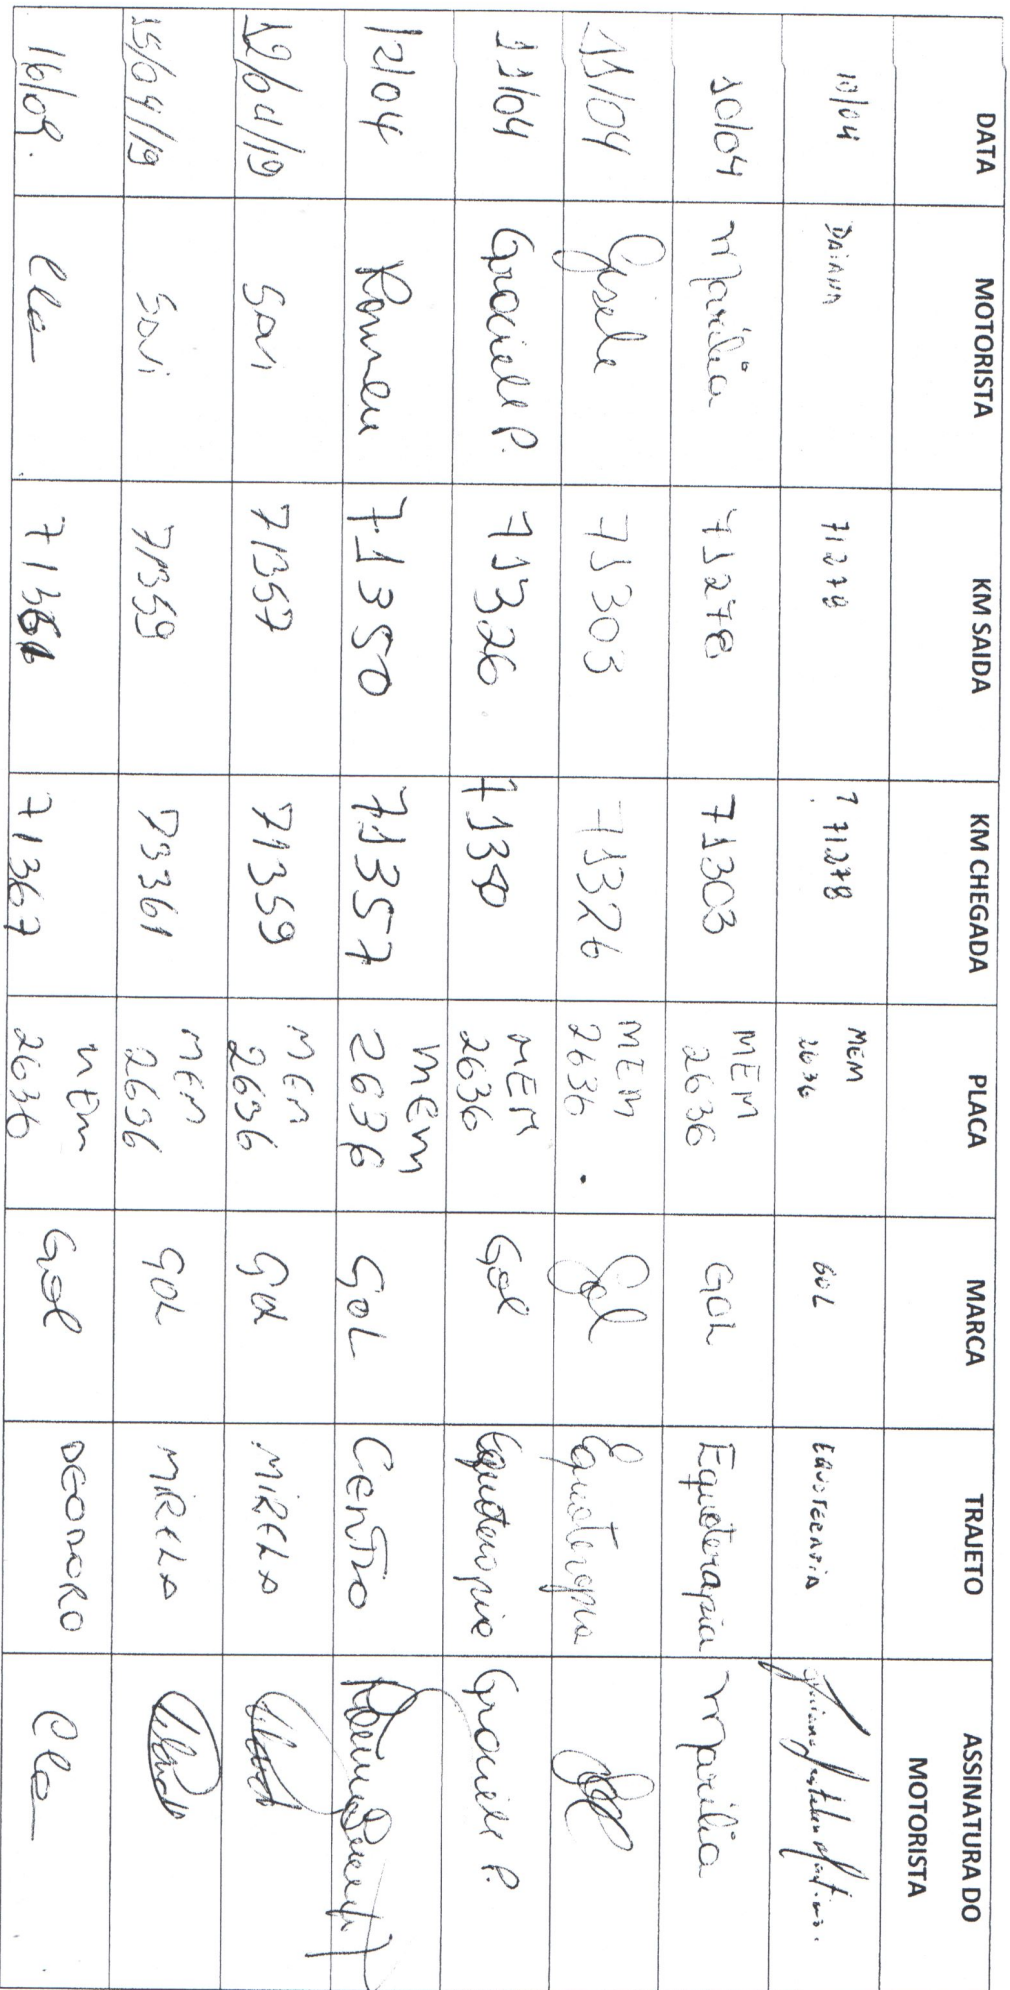 DATA MOTORISTA KM SAIDA KM CHEGADA PLACA MARCA TRAJETO ASSINATURA DO MOTORISTA
10/04 DAIANA 71278 ? 71278 MEM 2636 GOL EQUOTERAPIA
10/04 Marilia 71278 71303 MEM 2636 GOL Equoterapia Marilia
11/04 Gisele 71303 71326 MEM 2636. Gol Equoterapia
11/04 Graciele P. 71326 71350 MEM 2636 Gol Equoterapia Graciele P.
12/04 Romeu 71350 71357 MEM 2636 GOL CENTRO
12/04/19 SAVI 71357 71359 MEM 2636 GOL MIRELA
15/04/19 SAVI 71359 71361 MEM 2636 GOL MIRELA
16/04. Cle 71361 71367 MEM 2636 Gol DEODORO Cle